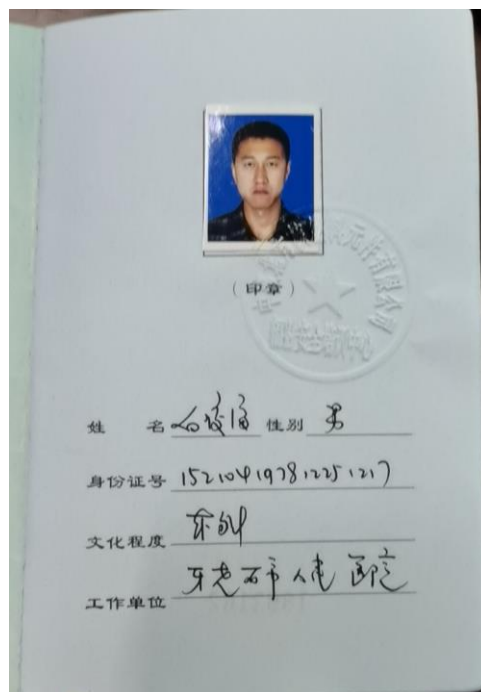 （印章）
姓 名 石 性别 男
身份证号 152104197812251217
文化程度 本科
工作单位 牙克石市人民医院